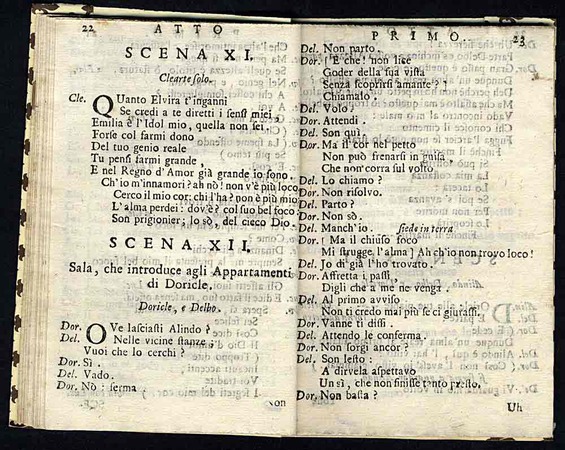 22 ATTO
SCENA XI.
Clearte solo.
Cle. QUanto Elvira t'inganni
Se credi a te diretti i sensi miei,
Emilia è l'Idol mio, quella non sei,
Forse col farmi dono
Del tuo genio reale
Tu pensi farmi grande,
E nel Regno d'Amor già grande io sono.
Ch'io m'innamori? ah nò! non v'è più loco
Cerco il mio cor: chi l'ha? non è più mio
L'alma perdei: dov'è? col suo bel foco
Son prigionier; lo sò, del cieco Dio.
SCENA XII.
Sala, che introduce agli Appartamenti
di Doricle.
Doricle, e Delbo.
Dor. OVe lasciasti Alindo?
Del. Nelle vicine stanze;
Vuoi che lo cerchi?
Dor. Sì.
Del. Vado.
Dor. Nò: ferma
PRIMO. 23
Del. Non parto.
Dor. (E che! non lice
Goder della sua vista
Senza scoprirsi amante?)
Chiamalo.
Del. Volo?
Dor. Attendi.
Del. Son quì.
Dor. Ma il cor nel petto
Non può frenarsi in guisa,
Che non corra sul volto.
Del. Lo chiamo?
Dor. Non risolvo.
Del. Parto?
Dor. Non sò.
Del. Manch'io. siede in terra
Dor. (Ma il chiuso foco
Mi strugge l'alma) Ah ch'io non trovo loco!
Del. Io di già l'ho trovato.
Dor. Affretta i passi,
Digli che a me ne venga.
Del. Al primo avviso
Non ti credo mai più se ci giurassi.
Dor. Vanne ti dissi.
Del. Attendo le conferma.
Dor. Non sorgi ancor?
Del. Son lesto:
A dirvela aspettavo
Un sì, che non finisse tanto presto.
Dor. Non basta?
Uh